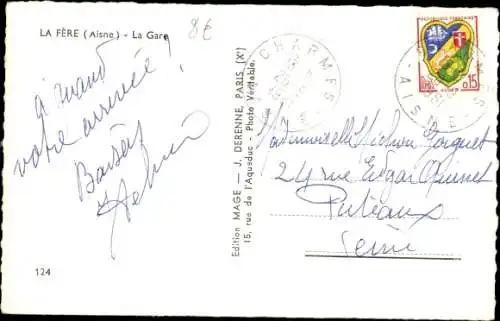 LA FÈRE (Aisne) - La Gare
8€
à quand
votre arrivée !
Baisers
124
Edition MAGE — J. DERENNE, PARIS (Xe)
15, rue de l'Aqueduc - Photo Véritable.
CHARMES
AISNE
REPUBLIQUE FRANCAISE
0,15
CHARMES
AISNE
Mademoiselle
24 rue Edgar Quinet
Puteaux
Seine